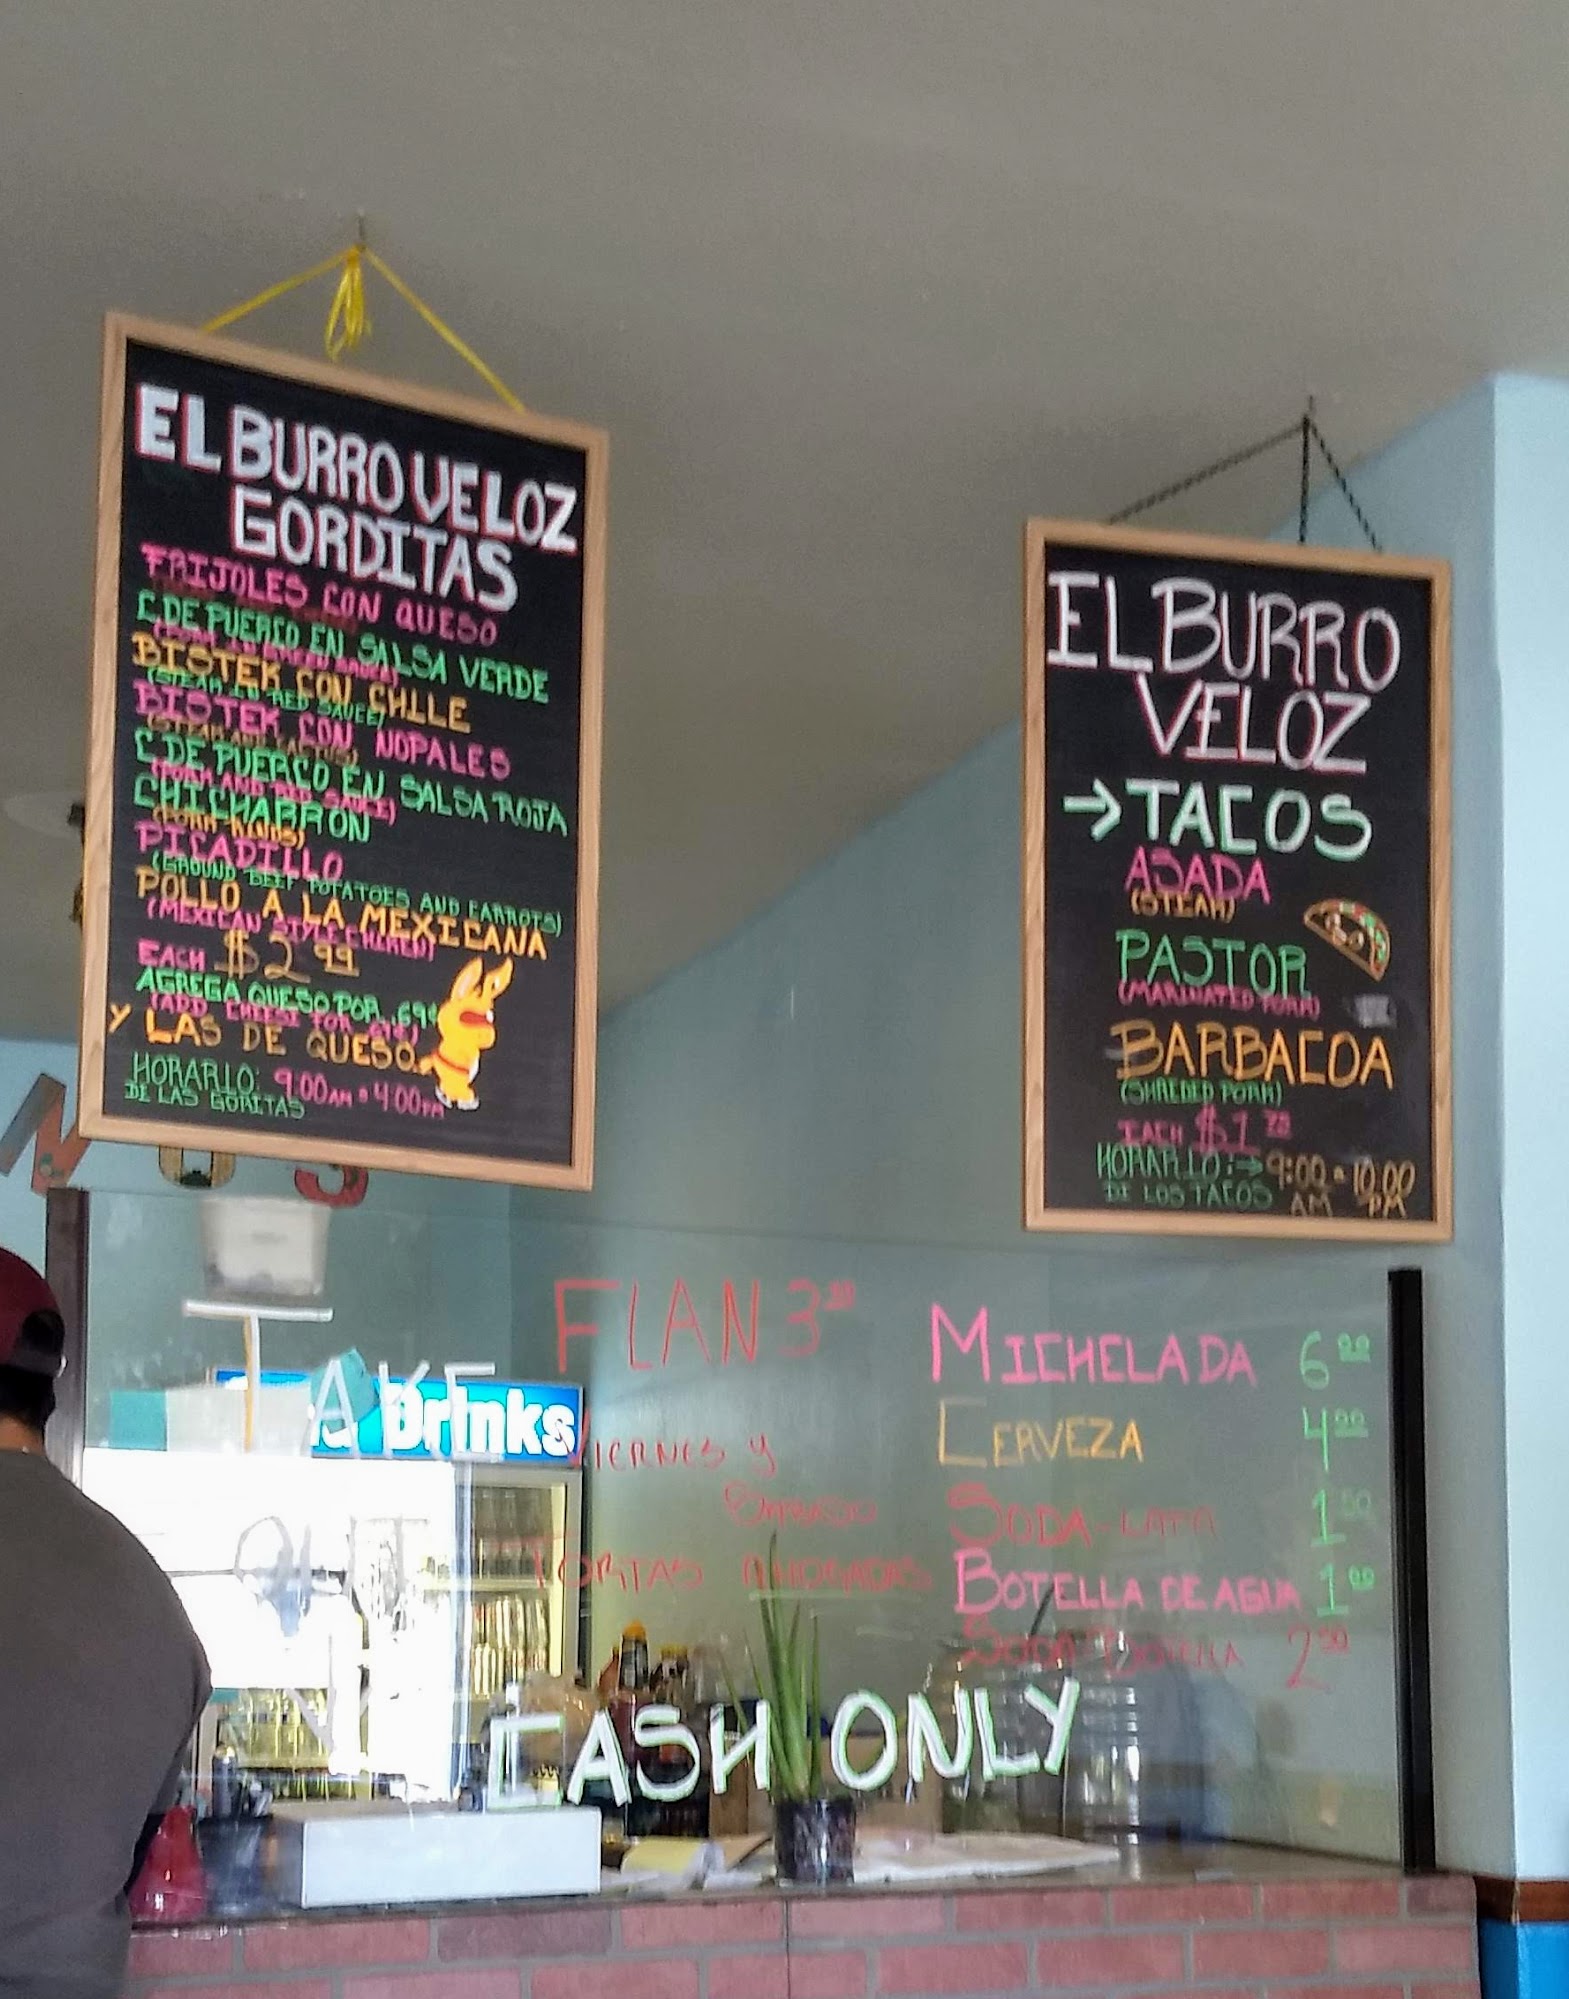 EL BURRO VELOZ
GORDITAS
FRIJOLES CON QUESO
C.DE PUERCO EN SALSA VERDE
(PORK IN GREEN SAUCE)
BISTEK CON CHILE
(STEAK IN RED SAUCE)
BISTEK CON NOPALES
(STEAK AND CACTUS)
C.DE PUERCO EN SALSA ROJA
(PORK AND RED SAUCE)
CHICHARRON
(PORK RINDS)
PICADILLO
(GROUND BEEF POTATOES AND CARROTS)
POLLO A LA MEXICANA
(MEXICAN STYLE CHICKEN)
EACH $2.99
AGREGA QUESO POR .69¢
(ADD CHEESE FOR .69¢)
Y LAS DE QUESO.
HORARIO: 9:00AM a 4:00PM
DE LAS GORITAS
EL BURRO
VELOZ
→TACOS
ASADA
(STEAK)
PASTOR
(MARINATED PORK)
BARBACOA
(SHREDED PORK)
EACH $1.75
HORARIO:→ 9:00 a 10:00
DE LOS TACOS AM PM
TAKE
OUT
Drinks
FLAN 3.50
VIERNES Y
SABADO
TORTAS AHOGADAS
MICHELADA 6.00
CERVEZA 4.00
SODA-LATA 1.50
BOTELLA DE AGUA 1.00
SODA BOTELLA 2.50
CASH ONLY